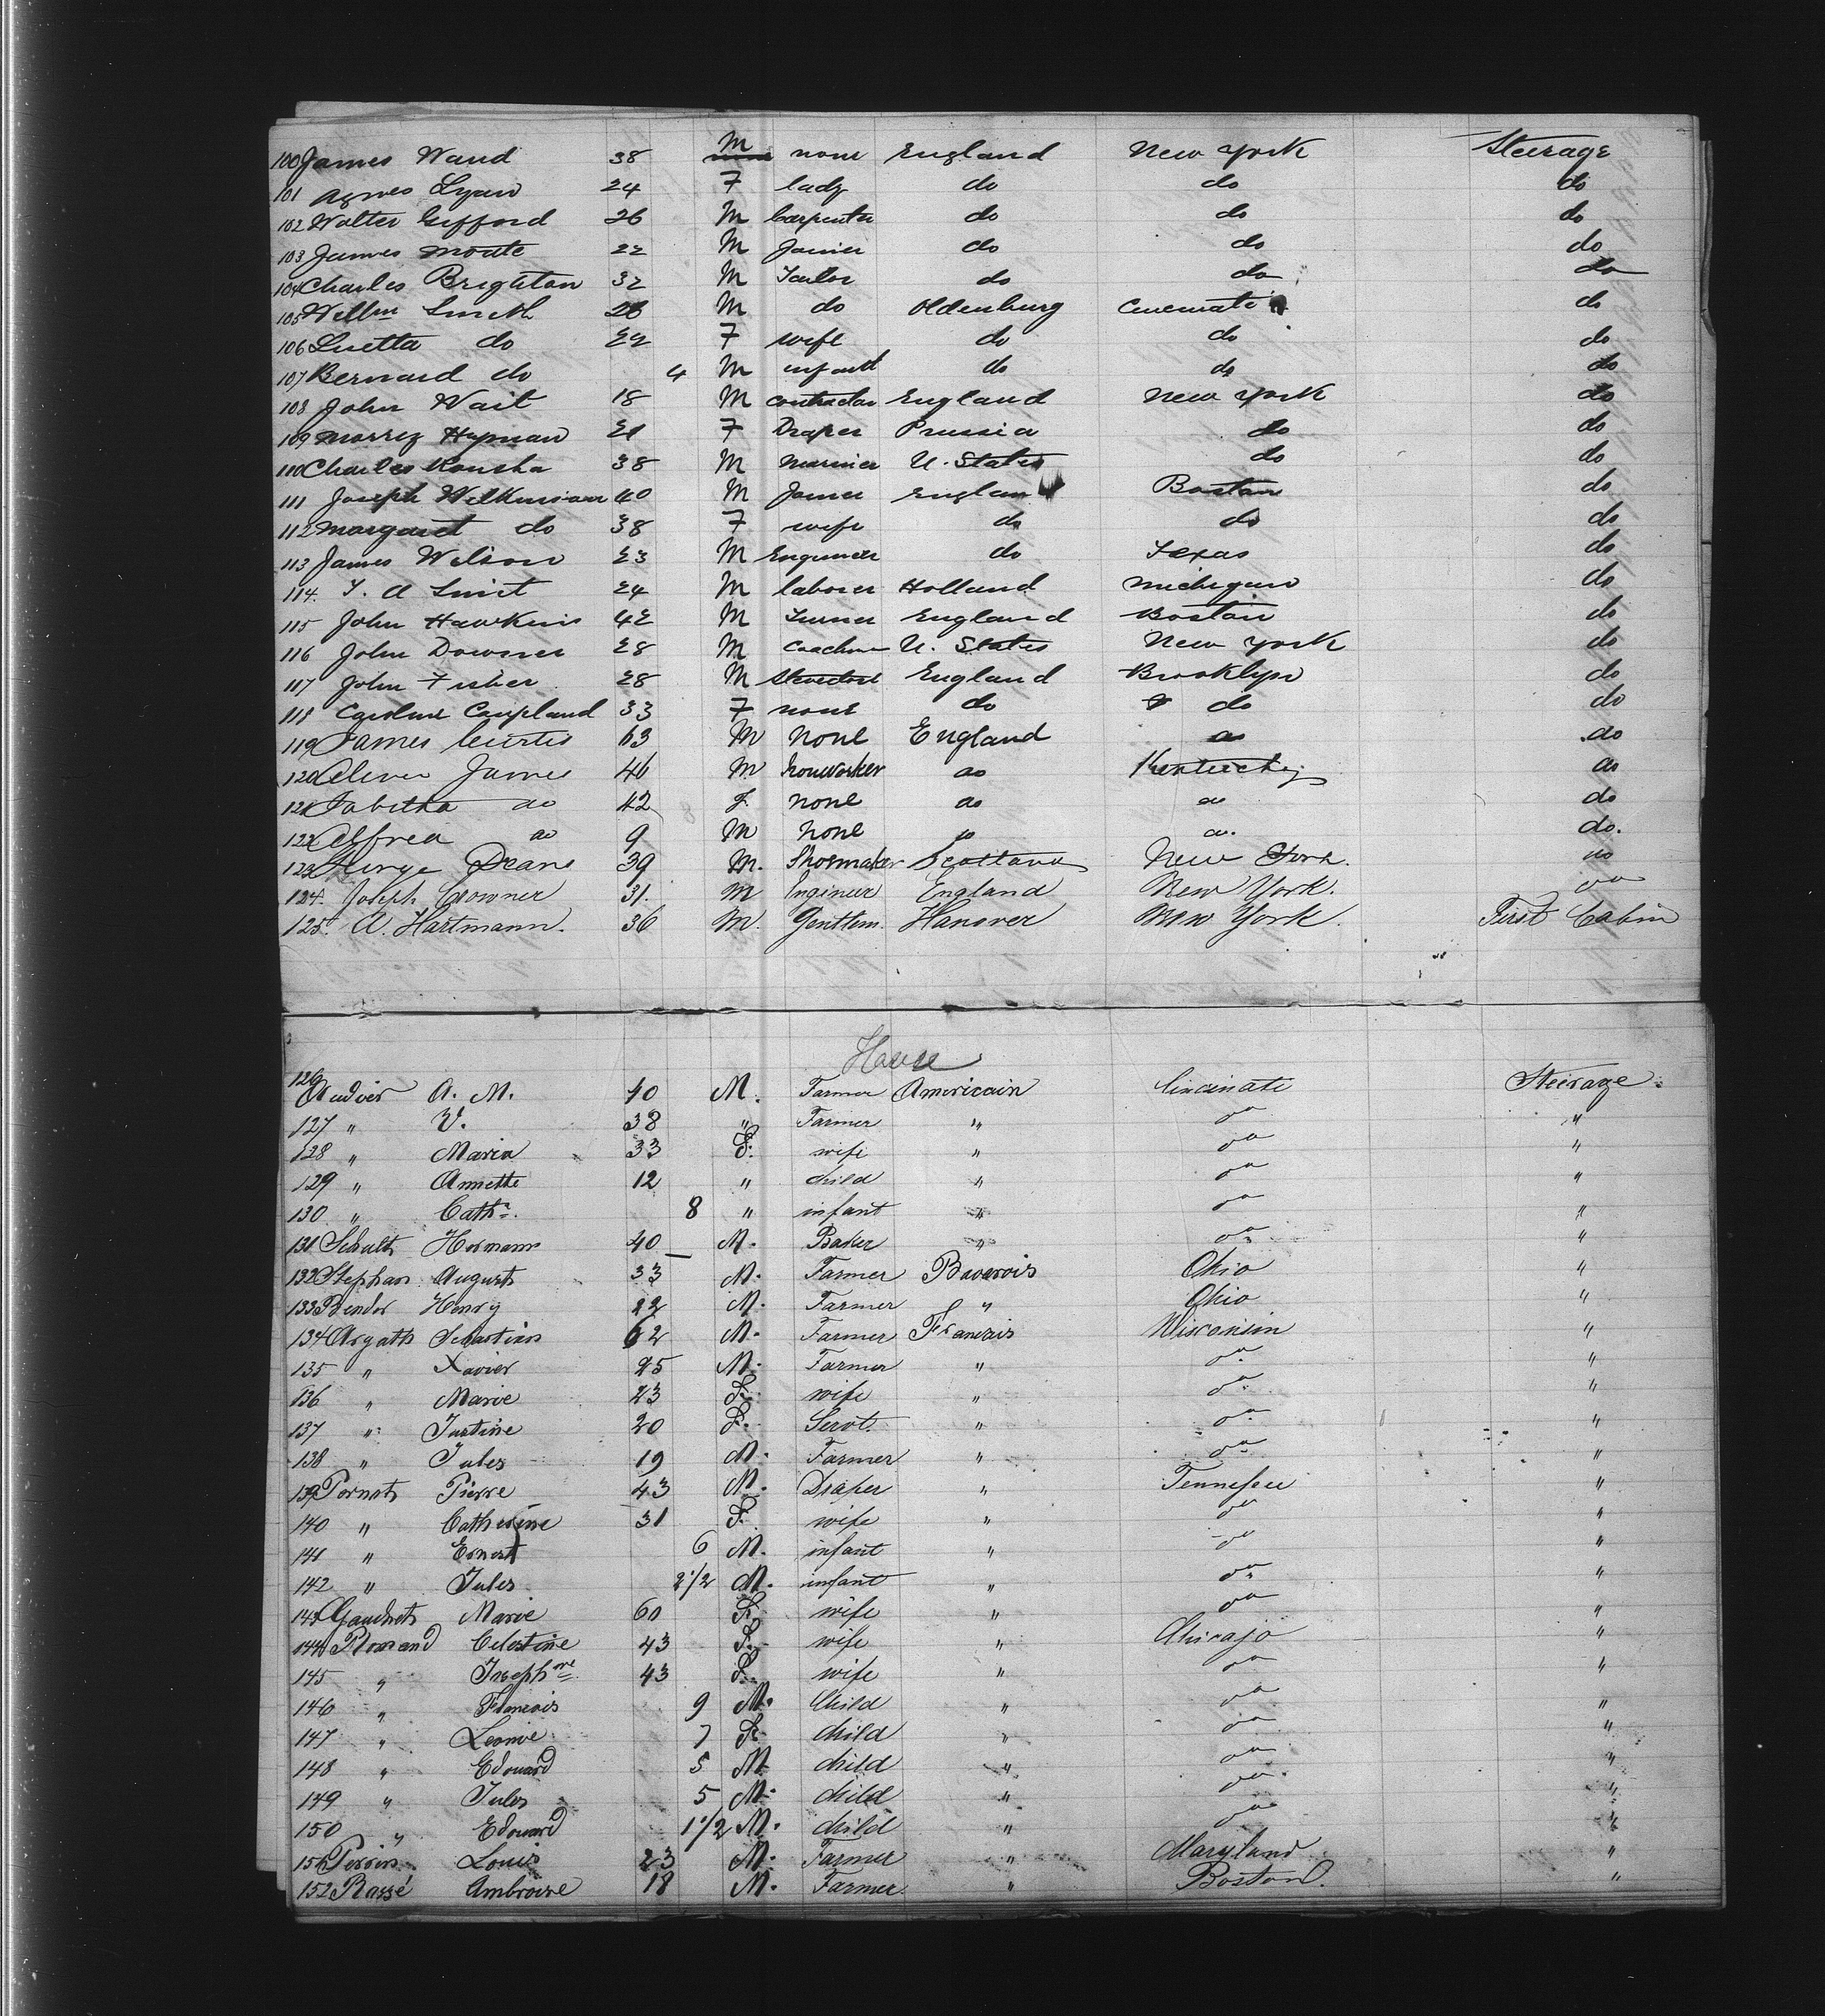 100 James Wand 38 M none England New York Steerage
101 Agnes Lyan 24 F lady do do do
102 Walter Gifford 26 M Carpenter do do do
103 James 22 M Joiner do do do
104 Charles Brighton 32 M Tailor do do do
105 Willm Smith 28 M do Oldenburg Cincinnati do
106 Luetta do 22 F wife do do do
107 Bernard do 4 M infant do do do
108 John Wait 18 M contractor England New York do
109 Morriz Hyman 21 F Draper Prussia do do
110 Charles 38 M Mariner U. States do do
111 Joseph Wilkinson 40 M Joiner England Boston do
112 Margaret do 38 F wife do do do
113 James Wilson 23 M Engineer do Texas do
114. T. A Smit 24 M laborer Holland Michigan do
115 John Hawkins 42 M Turner England Boston do
116 John Downer 28 M Coachm U. States New York do
117 John Fisher 28 M Stevedore England Brooklyn do
118 Caroline Coupland 33 F none do do do
119 James Curtis 63 M None England do do
120 James 46 M Ironworker do Kentucky do
121 Tabitha do 42 F none do do do
122 Alfred do 9 M None do do. do.
123 George Deans 39 M. Shoemaker Scotland New York. do
124. Joseph Crowner 31. M Engineer England New York. do
125. A. Hartmann. 36 M. Gentlem. Hanover New York. First Cabin
Havre
126 Audier A. M. 40 M. Farmer Americain Cincinati Steerage
127 " V. 38 " Farmer " do "
128 " Maria 33 F. wife " do "
129 " Annette 12 " child " do "
130 " Cathe. 8 " infant " do "
131 Schultz Hermann 40 M. Baker " do "
132 Stephan Auguste 33 M. Farmer Bavarois Ohio "
133 Bender Henry 22 M. Farmer " Ohio "
134 Argath Sebastien 62 M. Farmer Francais Wisconsin "
135 " Xavier 25 M. Farmer " do "
136 " Marie 23 F. wife " do "
137 " Justine 20 F. Servt. " do "
138 " Jules 19 M. Farmer " do "
139 Pornats Pierre 43 M. Draper " Tennessee "
140 " Catherine 31 F. wife " do "
141 " Ernest 6 M. infant " do "
142 " Jules 2 1/2 M. infant " do "
143 Gaudrets Marie 60 F. wife " do "
144 Celestine 43 F. wife " Chicago "
145 " Josephne 43 F. wife " do "
146 " Francois 9 M. Child " do "
147 " Leonie 7 F. child " do "
148 " Edouard 5 M. child " do "
149 " Jules 5 M. child " do "
150 " Edouard 1 1/2 M. child " do "
151 Perrin Louis 23 M. Farmer " Maryland "
152 Rassé Ambroise 18 M. Farmer. " Boston. "